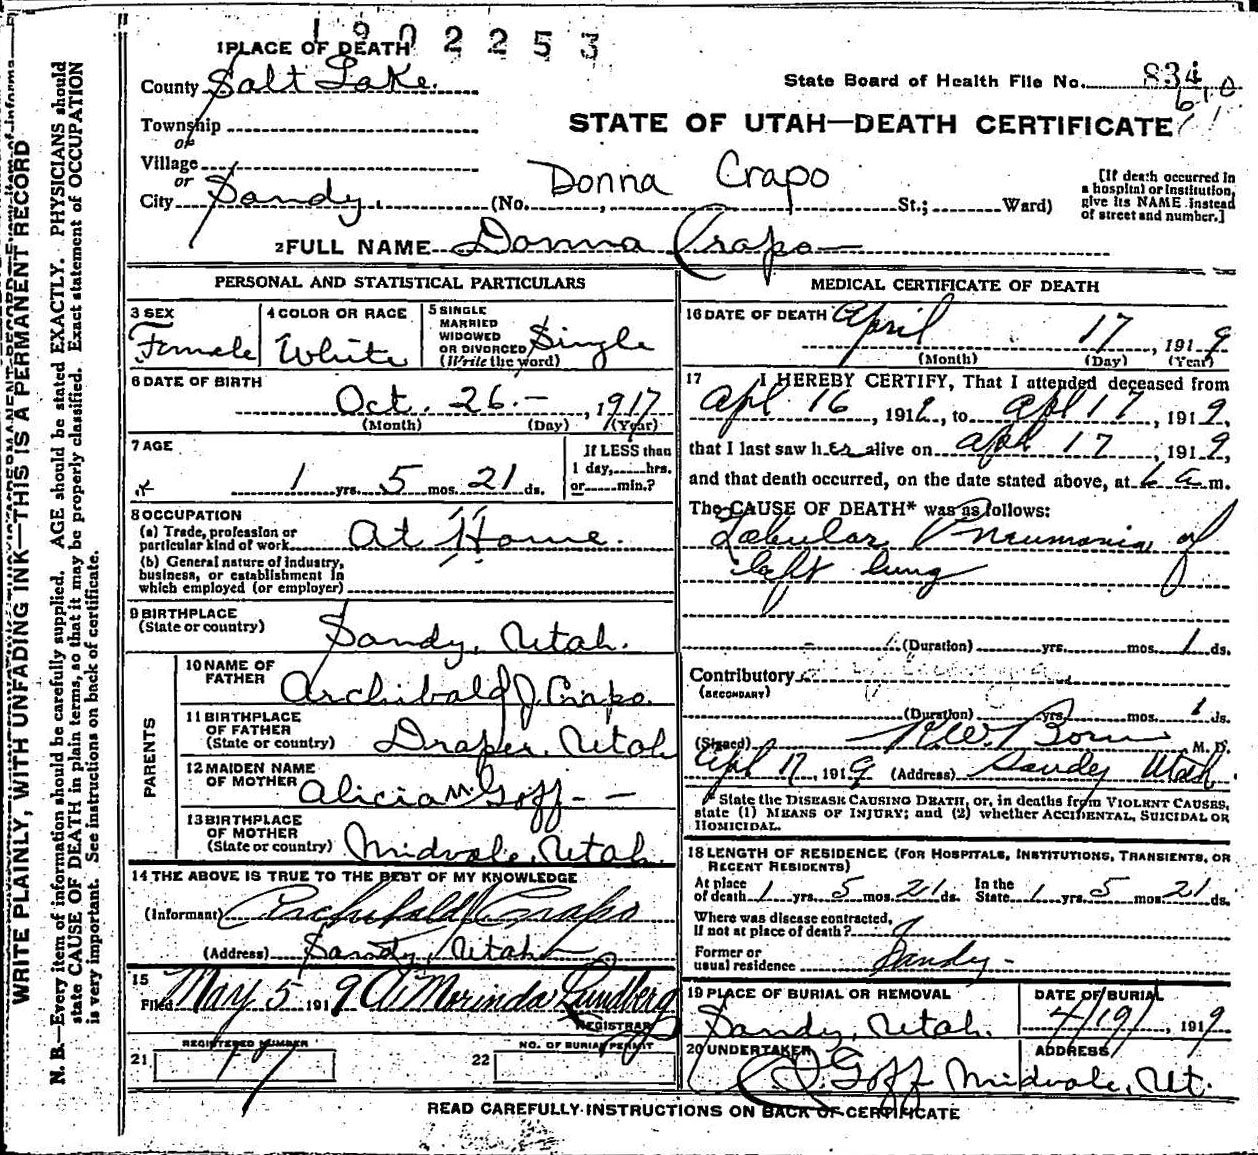 1902253
1 PLACE OF DEATH
County Salt Lake.
State Board of Health File No. 834
610
Township
or
STATE OF UTAH—DEATH CERTIFICATE
Village
or
Donna Crapo
City Sandy. (No. , St.; Ward)
[If death occurred in
a hospital or institution,
give its NAME instead
of street and number.]
2 FULL NAME Donna Crapo
PERSONAL AND STATISTICAL PARTICULARS
3 SEX
Female
4 COLOR OR RACE
White
5 SINGLE
MARRIED
WIDOWED
OR DIVORCED
(Write the word)
Single
6 DATE OF BIRTH
Oct. 26.- , 1917
(Month) (Day) (Year)
7 AGE
1 yrs. 5 mos. 21 ds.
If LESS than
1 day, hrs.
or min.?
8 OCCUPATION
(a) Trade, profession or
particular kind of work At Home.
(b) General nature of industry,
business, or establishment in
which employed (or employer)
9 BIRTHPLACE
(State or country) Sandy, Utah.
PARENTS
10 NAME OF
FATHER Archibald J. Crapo.
11 BIRTHPLACE
OF FATHER
(State or country) Draper, Utah
12 MAIDEN NAME
OF MOTHER Alicia M. Goff - -
13 BIRTHPLACE
OF MOTHER
(State or country) Midvale, Utah.
14 THE ABOVE IS TRUE TO THE BEST OF MY KNOWLEDGE
(Informant) Archibald J Crapo
(Address) Sandy, Utah
15
Filed May 5 1919 A Morinda Lundberg
REGISTRAR
REGISTERED NUMBER
21
NO. OF BURIAL PERMIT
22
MEDICAL CERTIFICATE OF DEATH
16 DATE OF DEATH April 17 , 1919
(Month) (Day) (Year)
17 I HEREBY CERTIFY, That I attended deceased from
Apl 16 , 1919, to Apl 17 , 1919,
that I last saw her alive on Apl 17 , 1919,
and that death occurred, on the date stated above, at 6 a m.
The CAUSE OF DEATH* was as follows:
Lobular Pneumonia of
left lung
(Duration) yrs. mos. 1 ds.
Contributory
(SECONDARY)
(Duration) yrs. mos. 1 ds.
(Signed) R.W. Born M. D.
Apl 17, 1919 (Address) Sandy Utah
* State the DISEASE CAUSING DEATH, or, in deaths from VIOLENT CAUSES,
state (1) MEANS OF INJURY; and (2) whether ACCIDENTAL, SUICIDAL OR
HOMICIDAL.
18 LENGTH OF RESIDENCE (FOR HOSPITALS, INSTITUTIONS, TRANSIENTS, OR
RECENT RESIDENTS)
At place
of death 1 yrs. 5 mos. 21 ds.
In the
State 1 yrs. 5 mos. 21 ds.
Where was disease contracted,
if not at place of death?
Former or
usual residence Sandy -
19 PLACE OF BURIAL OR REMOVAL
Sandy, Utah.
DATE OF BURIAL
4/19/ , 1919
20 UNDERTAKER
Goff
ADDRESS
Midvale, Ut.
READ CAREFULLY INSTRUCTIONS ON BACK OF CERTIFICATE
WRITE PLAINLY, WITH UNFADING INK—THIS IS A PERMANENT RECORD
N. B.—Every item of information should be carefully supplied. AGE should be stated EXACTLY. PHYSICIANS should
state CAUSE OF DEATH in plain terms, so that it may be properly classified. Exact statement of OCCUPATION
is very important. See instructions on back of certificate.